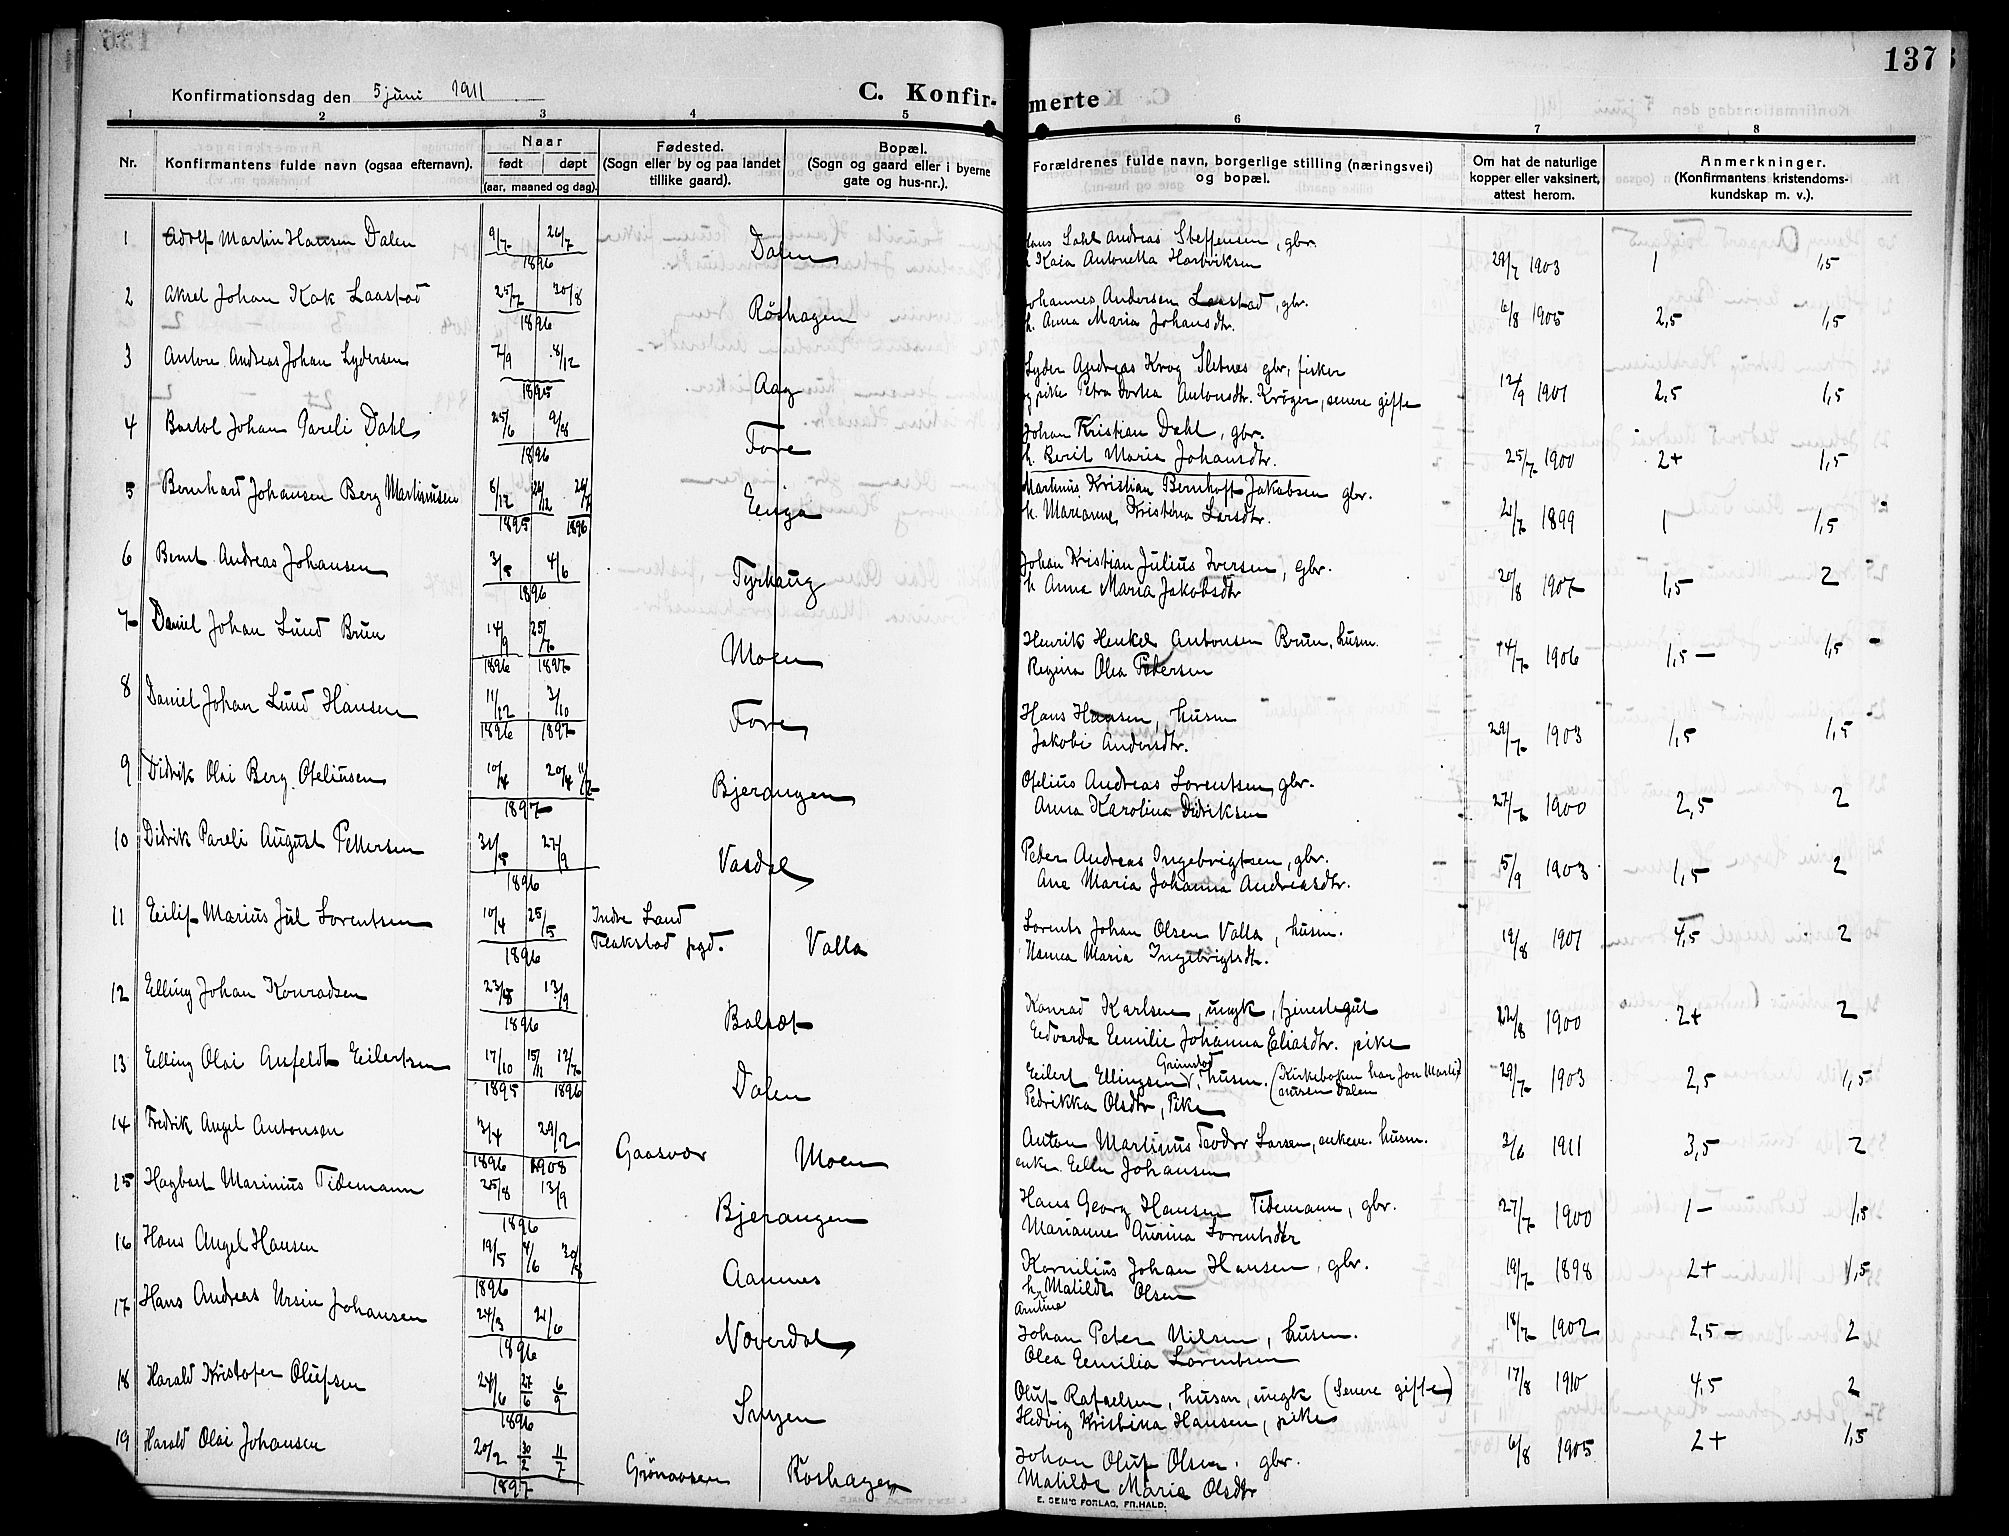 137
Konfirmationsdag den 5 juni 1911
C. Konfir-
merte
1 2 3 4 5 6 7 8
Nr.
Konfirmantens fulde navn (ogsaa efternavn).
Naar
født døpt
(aar, maaned og dag).
Fødested.
(Sogn eller by og paa landet
tillike gaard).
Bopæl.
(Sogn og gaard eller i byerne
gate og hus-nr.).
Forældrenes fulde navn, borgerlige stilling (næringsvei)
og bopæl.
Om hat de naturlige
kopper eller vaksinert,
attest herom.
Anmerkninger.
(Konfirmantens kristendoms-
kundskap m. v.).
1 Adolf Martin Hansen Dalen 9/7 26/7 1896 Dalen
Hans Dahl Andreas Steffensen, gbr.
Kaia Antonetta Hartviksen 29/7 1903 1 1,5
2 Aksel Johan Kok Laastad 25/7 30/8 1896 Røshagen
Johannes Andersen Laastad, gbr.
h. Anna Maria Johansdtr. 6/8 1905 2,5 1,5
3 Anton Andreas Johan Lydersen 7/9 8/12 1895 Aag
Lyder Andreas Krog Sletnes gbr, fisker
og pike Petra Dortea Antonsdtr. Krøger, senere gifte 12/9 1901 2,5 1,5
4 Bartol Johan Pareli Dahl 25/6 9/8 1896 Fore
Johan Kristian Dahl, gbr.
h. Berit Maria Johansdtr. 25/7 1900 2+ 1,5
5 Bernhart Johansen Berg Martinusen 8/12 26/12 26/7 1895 1896 Eenga
Martinus Kristian Bernhoft Jakobsen gbr.
h. Marianne Kristina Larsdtr. 21/7 1899 1 1,5
6 Bernt Andreas Johansen 3/5 4/6 1896 Tyrhaug
Johan Kristian Julius Iversen, gbr.
h Anna Maria Jakobsdtr 20/8 1907 1,5 2
7 Daniel Johan Lund Brun 14/9 25/7 1896 1897 Moen
Henrik Henkel Antonsen Brun, husm.
Regina Olea Pedersen 14/7 1906 1,5 - 1,5 -
8 Daniel Johan Lund Hansen 11/12 3/10 1896 1897 Fore
Hans Hansen, husm
Jakobi Andersdtr. 29/7 1903 1,5 1,5
9 Didrik Olai Berg Ofeliusen 10/4 20/4 11/7 1897 Bjerangen
Ofelius Andreas Lorentsen, gbr.
Anna Karolina Didriksen 27/7 1900 2,5 2
10 Didrik Pareli August Pettersen 31/8 27/9 1896 Vasdal
Peter Andreas Ingebrigtsen, gbr.
Ane Maria Johanna Andreasdtr. 5/9 1903 1,5 2
11 Eilif Marius Jul Lorentsen 10/4 25/5 1896 Indre Sand
Flakstad pgd. Valla
Lorents Johan Olsen Valla, husm.
Hanna Maria Ingebrigtsdtr. 19/8 1901 4,5 2
12 Elling Johan Konradsen 23/8 13/9 1896 Bolsæt
Konrad Karlsen, ungk, tjenestegut
Edvarda Emilie Johanna Eliasdtr. pike 22/8 1900 2+ 2
13 Elling Olai Ansfeldt Eilertsen 17/10 15/11 12/7 1895 1896 Dalen
Eilert Ellingsen Grimstad, husm. (Kirkeboken har Jon Marti-
nusen Dalen
Pedrikka Olsdtr, Pike 29/7 1903 2,5 1,5
14 Fredrik Angel Antonsen 3/4 29/2 1896 1908 Gaasvær Moen
Anton Martinus Teodor Larsen, enkem. husm.
enke Ellen Johansen 3/6 1911 3,5 2
15 Hagbart Marinius Tidemann 25/8 13/9 1896 Bjerangen
Hans Georg Hansen Tidemann, gbr.
Marianne Aurina Lorentsdtr 27/7 1900 1 - 1,5
16 Hans Angel Hansen 19/5 4/6 30/8 1896 Aannes
Kornelius Johan Hansen, gbr.
h. Matilde Olsen 19/7 1898 2+ 1,5
Antina
17 Hans Andreas Ursin Johansen 24/3 21/6 1896 Noverdal
Johan Peter Nilsen, husm.
Olea Eemilia Lorentsen 18/7 1902 2,5 - 2
18 Harald Kristofer Olufsen 24/6 27/6 6/9 1896 Smyen
Oluf Rafaelsen, husm, ungk (Senere gifte)
Hedvig Kristina Hansen, pike 17/8 1910 4,5 2
19 Harald Olai Johansen 20/2 30/2 11/7 1897 Grønaasen Røshagen
Johan Oluf Olsen, gbr.
Matilde Maria Olsdtr 6/8 1905 2+ 1,5
E. SEM'S FORLAG, FR.HALD.